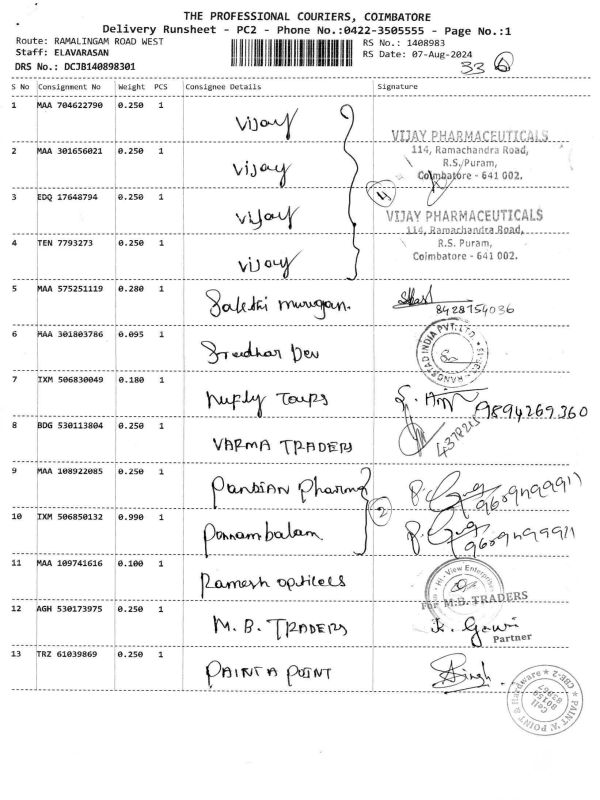 THE PROFESSIONAL COURIERS, COIMBATORE
Delivery Runsheet - PC2 - Phone No.:0422-3505555 - Page No.:1
Route: RAMALINGAM ROAD WEST RS No.: 1408983
Staff: ELAVARASAN RS Date: 07-Aug-2024
DRS No.: DCJB140898301 33 6
S No Consignment No Weight PCS Consignee Details Signature
1 MAA 704622790 0.250 1 Vijay
VIJAY PHARMACEUTICALS
114, Ramachandra Road,
2 MAA 301656021 0.250 1 Vijay
R.S. Puram,
Coimbatore - 641 002.
4
3 EDQ 17648794 0.250 1 Vijay
VIJAY PHARMACEUTICALS
114, Ramachandra Road,
4 TEN 7793273 0.250 1 Vijay
R.S. Puram,
Coimbatore - 641 002.
5 MAA 575251119 0.280 1 Sakthi murugan.
8428154036
6 MAA 301803786 0.095 1 Sreedhar Dev
RANDSTAD INDIA PVT. LTD.
7 IXM 506830049 0.180 1 Tours
9894269360
8 BDG 530113804 0.250 1 VARMA TRADERS
9 MAA 108922085 0.250 1 Pandian Pharma
2
10 IXM 506850132 0.990 1 Ponnambalam
11 MAA 109741616 0.100 1 Ramesh opticels
Hi-View Enterprises
For M.B. TRADERS
12 AGH 530173975 0.250 1 M.B. TRADERS
K. Gowri
Partner
13 TRZ 61039869 0.250 1 PAINT A POINT
Singh
PAINT 'A' POINT